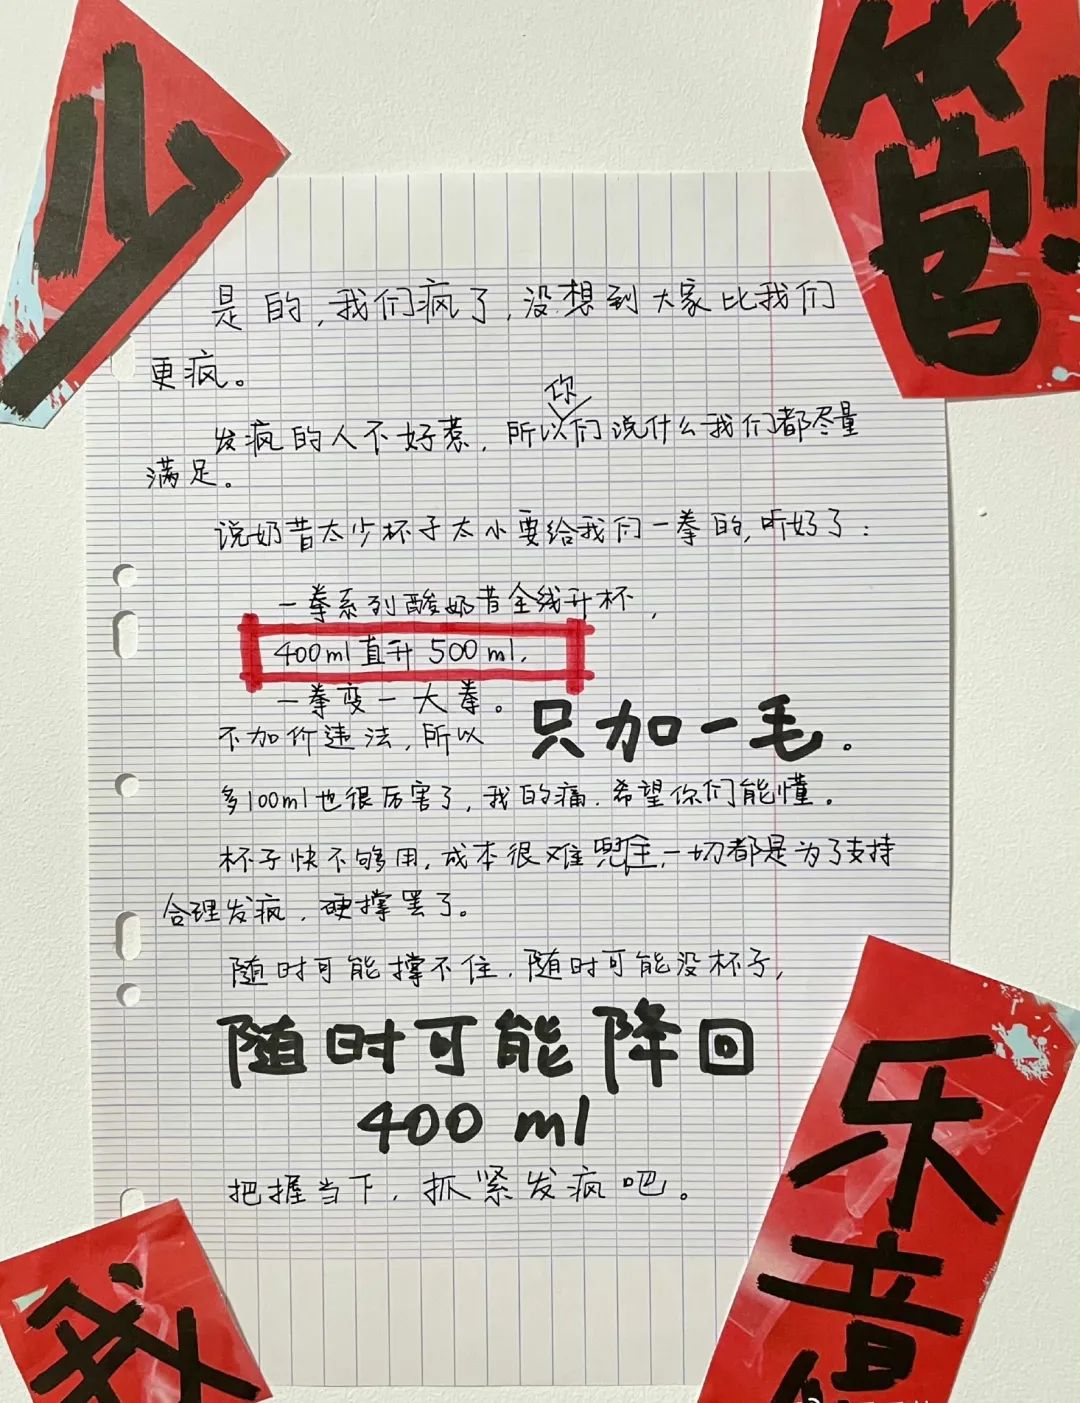 少
管!
是的,我们疯了,没想到大家比我们
更疯。
发疯的人不好惹,所以你们说什么我们都尽量
满足。
说奶昔太少杯子太小要给我们一拳的,听好了:
一拳系列酸奶昔全线升杯,
400ml直升500ml.
一拳变一大拳。
不加价违法,所以 只加一毛。
多100ml也很厉害了,我的痛.希望你们能懂.
杯子快不够用,成本很难兜住,一切都是为了支持
合理发疯,硬撑罢了。
随时可能撑不住.随时可能没杯子,
随时可能降回
400ml
把握当下,抓紧发疯吧。
我
乐
意